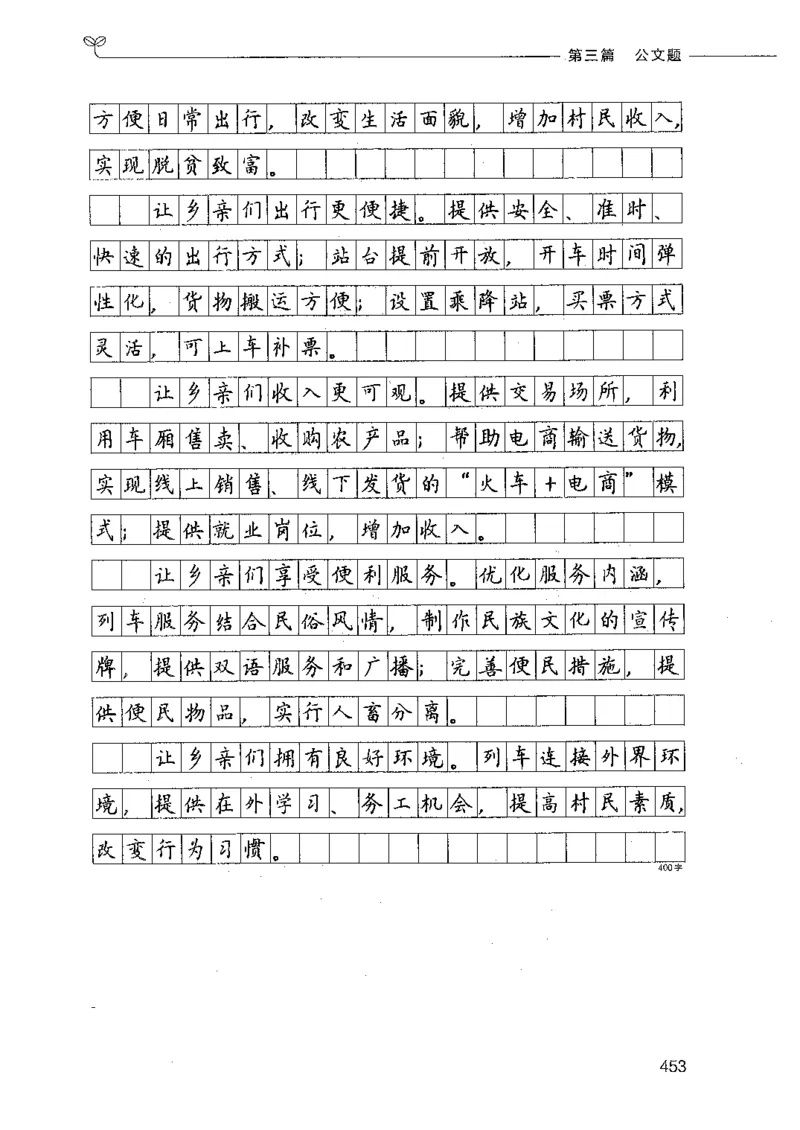 第三篇 公文题
方便日常出行，改变生活面貌，增加村民收入，
实现脱贫致富。
让乡亲们出行更便捷。提供安全、准时、
快速的出行方式；站台提前开放，开车时间弹
性化，货物搬运方便；设置乘降站，买票方式
灵活，可上车补票。
让乡亲们收入更可观。提供交易场所，利
用车厢售卖、收购农产品；帮助电商输送货物，
实现线上销售、线下发货的“火车+电商”模
式；提供就业岗位，增加收入。
让乡亲们享受便利服务。优化服务内涵，
列车服务结合民俗风情，制作民族文化的宣传
牌，提供双语服务和广播；完善便民措施，提
供便民物品，实行人畜分离。
让乡亲们拥有良好环境。列车连接外界环
境，提供在外学习、务工机会，提高村民素质，
改变行为习惯。
400字
453